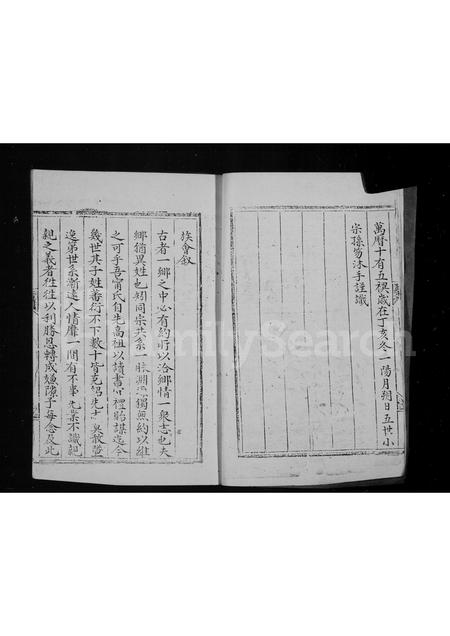 萬曆十有五禩歲在丁亥冬一陽月朔日五世小
宗孫笏沐手謹識
族會叙
古者一鄉之中必有約所以洽鄉情一衆志也夫
鄉猶異姓也矧同宗共系一脉淵源獨無約以維
之可乎吾甯氏自先高祖以讀書守禮貽謀迄今
幾世其子姓蕃衍不下數十皆克紹先志奐散萱
逸第世系漸遠人情靡一間有不事先業不識親
親之義者徃徃以利勝恩轉成嫌隙予每念及此
FamilySearch